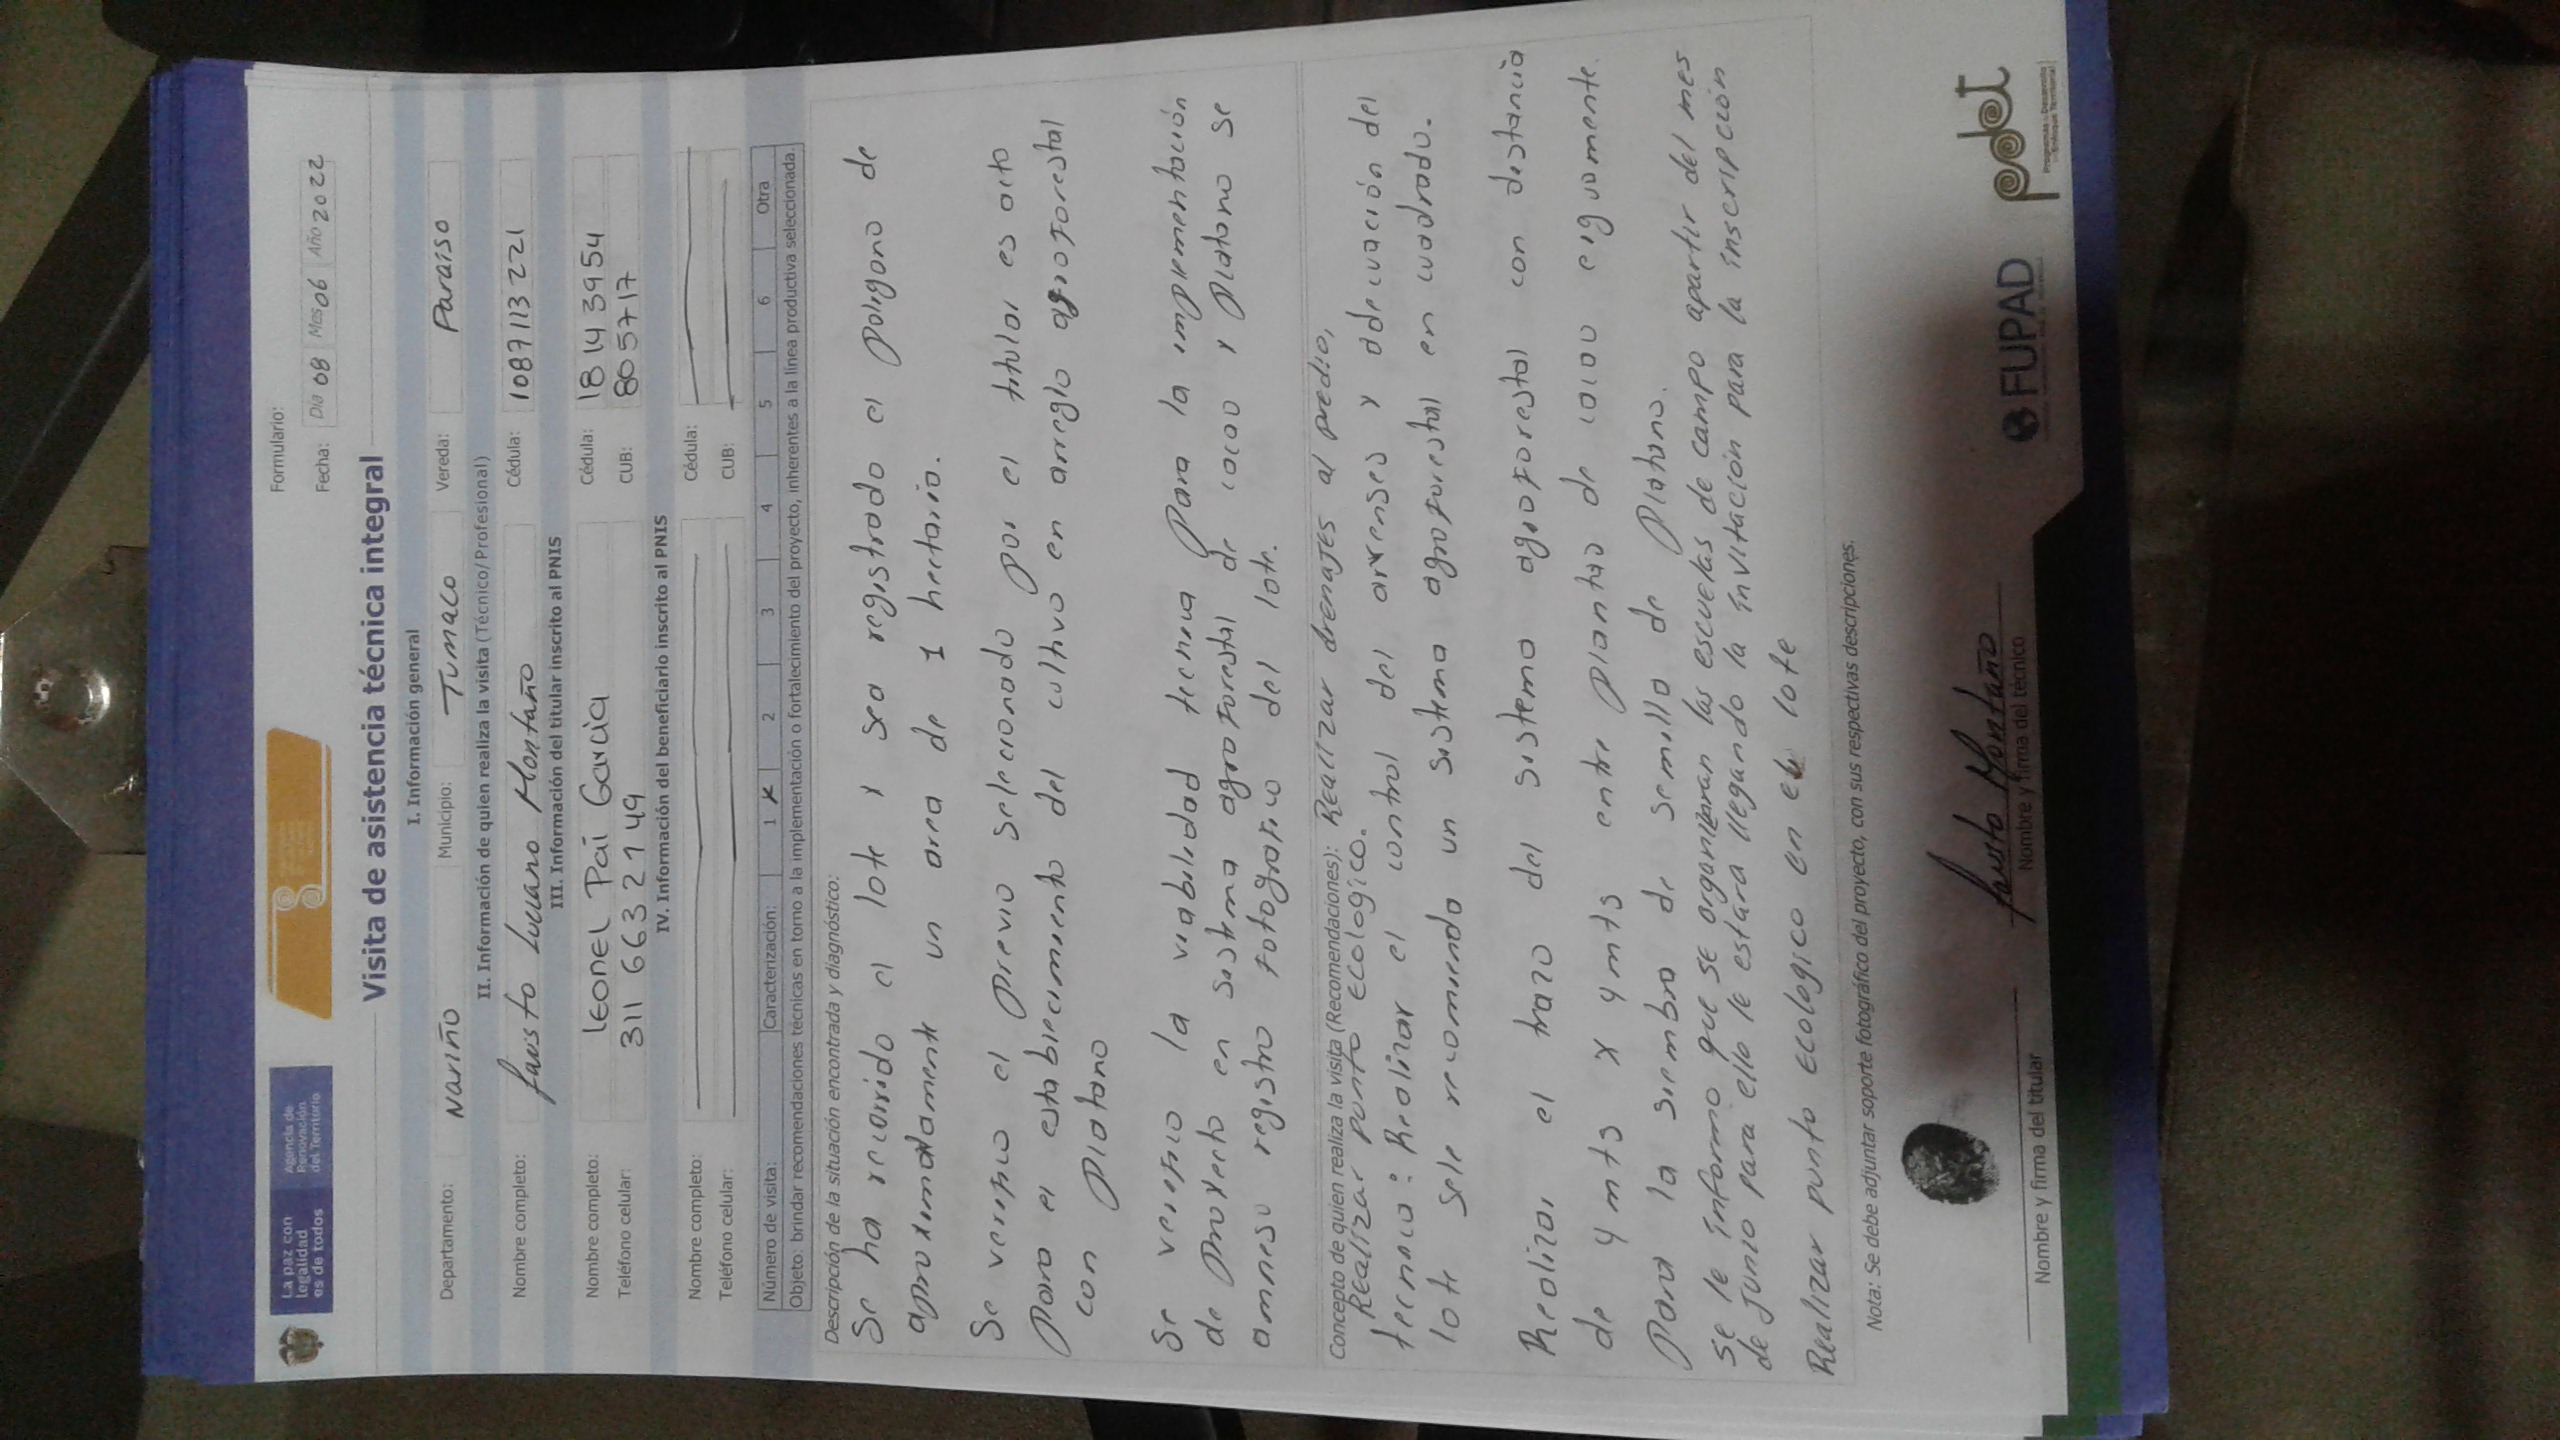 La paz con
legalidad
es de todos
Agencia de
Renovación
del Territorio
Formulario:
Fecha: Dia 08 Mes 06 Año 2022
Visita de asistencia técnica integral
I. Información general
Departamento: Nariño Municipio: Tumaco Vereda: Paraiso
II. Información de quien realiza la visita (Técnico/Profesional)
Nombre completo: fausto Luciano Montaño Cédula: 1087113221
III. Información del titular inscrito al PNIS
Nombre completo: Leonel Pai Garcia Cédula: 18143954
Teléfono celular: 311 663 2149 CUB: 805717
IV. Información del beneficiario inscrito al PNIS
Nombre completo: Cédula:
Teléfono celular: CUB:
Número de visita: Caracterización: 1 X 2 3 4 5 6 Otra
Objeto: brindar recomendaciones técnicas en torno a la implementación o fortalecimiento del proyecto, inherentes a la línea productiva seleccionada.
Descripción de la situación encontrada y diagnóstico:
Se ha recorrido el lote y sea registrado el poligono de
aproximadamente un area de 1 hectaria.
Se verifico el previo seleccionado por el titular es acto
para el establecimiento del cultivo en arreglo agroforestal
con platano
Se verifico la viabilidad tecnica para la implementación
de proyecto en sistema agroforestal de cacao y platano se
anneso registro fotografico del lote.
Concepto de quien realiza la visita (Recomendaciones): Realizar drenajes al predio,
Realizar punto ecologico.
tecnico: Realizar el control del arvenses y adecuación del
lote sele recomienda un sistema agroforestal en cuadrado.
Realizar el trazo del sistema agroforestal con distancia
de 4 mts x 4 mts entre plantas de cacao eiguamente.
Para la siembra de semilla de platano.
Se le informo que se organizaran las escuelas de campo apartir del mes
de junio para ello le estara llegando la invitación para la inscripción
Realizar punto ecologico en el lote
Nota: Se debe adjuntar soporte fotográfico del proyecto, con sus respectivas descripciones.
fausto Montaño
Nombre y firma del titular Nombre y firma del técnico
FUPAD
pdet
Programas de Desarrollo
con Enfoque Territorial